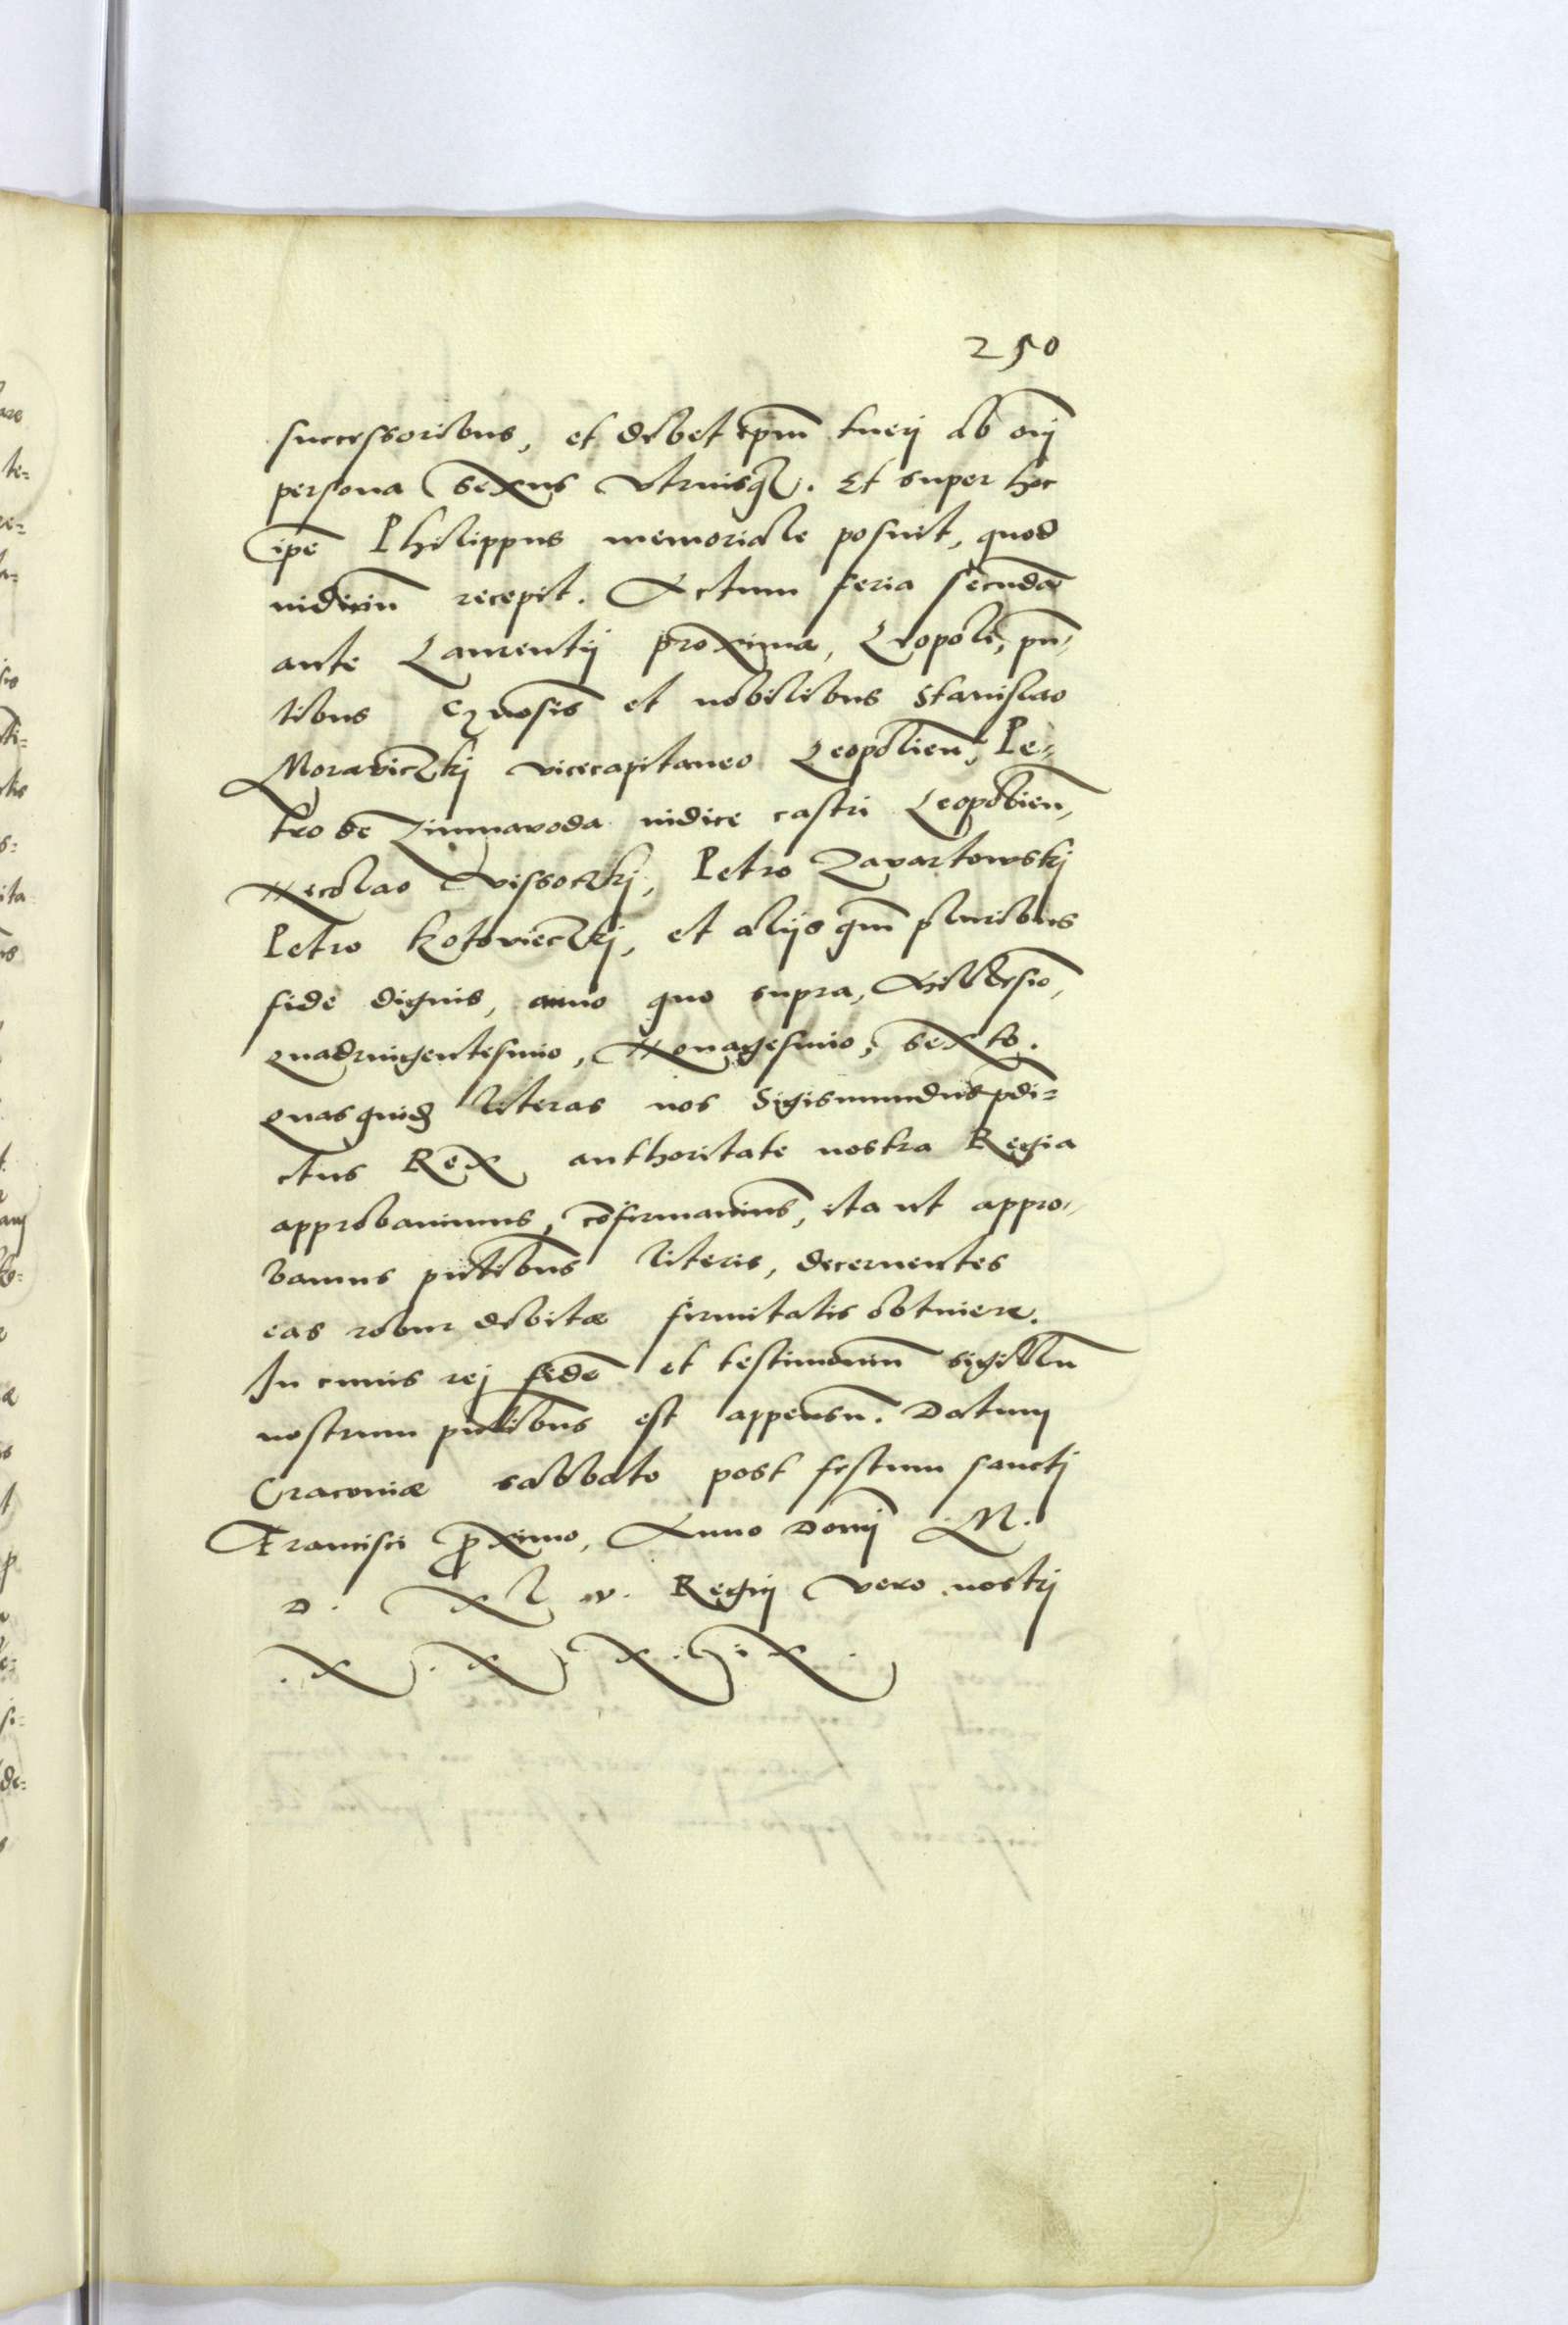 250
successoribus, et debet ipm̄ tueri ab oī
persona sexus vtriusq₃. Et super hoc
ip̄e Philippus memoriale posuit, quod
iudiciū recepit. Actum feria secūda
ante Laurentij proxima, Leopoli, pn̄-
tibus gn̄osis et nobilibus Stanislao
Moraviczkj vicecapitaneo Leopolien̄, Pe-
tro de Zimnavoda iudice castri Leopolien̄,
Necolao Vissoczkj, Petro Zavartowskj
Petro Kotovieczkj, et alijs qm̄ pluribus
fide dignis, anno quo supra, Millesīo,
quadringentesimo, Nonagesimo, sexto.
quasquid₃ literas nos Sigismundus pdi-
ctus Rex authoritate nostra Regia
approbauimus, cōfirmauim̄s, ita ut appro-
bamus pn̄tibus literis, decernentes
eas robur debitæ firmitatis obtinere.
In cuius rej fidē et testimoniū sigillū
nostrum pn̄tibus est appensū. Datum
Cracouiæ sabbato post festum sanctj
Francisci p̱ximo, Anno Domī .M.
D. Xl iv. Regnj vero nostrj
.X.X.X.iX.